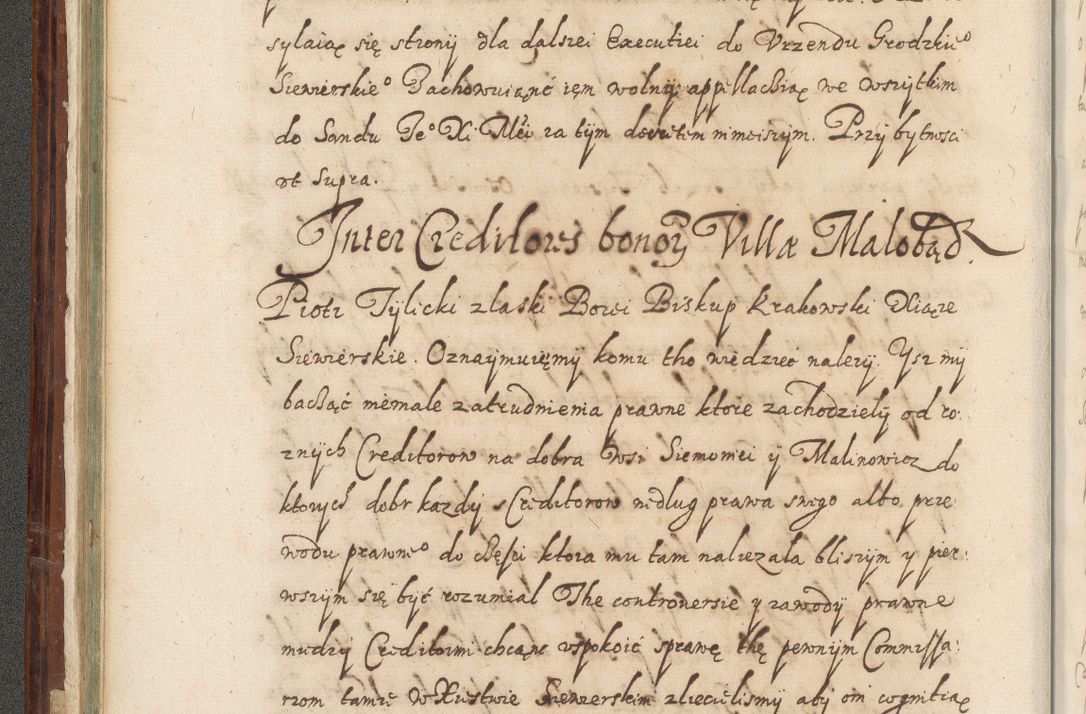 sylaiąc się strony dla dalszei Executiei do Vrzendu Grodzkie⁰
Siewierskie⁰ Zachowuiąnć iem wolną appellacbią we wszytkim
do Sandu Je⁰ Xi Mći za tym decretem nineiszym. Przy bytnosci
ut supra.
Inter Creditores bonoꝝ Villæ Malobąd.
Piotr Tylicki z laski Bozei Biskup Krakowski Xiąze
Siewierskie. Oznaymuięmy komu tho wiedzieć nalezy. Ysz my
bacbąć niemale zatrudnienia prawne ktore zachodziely od ro:
znych Creditorow na dobra Wsi Siemoniei y Malinowicz do
ktorych dobr kazdy s Creditorow według prawa swego albo prze:
wodu prawne⁰ do cbęści ktora mu tam nalezala bliszym y pier:
wszym się być rozumial The controversie y zawody prawne
miedzy Creditormi chcąnc vspokoić sprawę thę pewnym Commissa:
rzom tamze w Xustwie Siewerskim zlieciliśmy aby oni cognitią